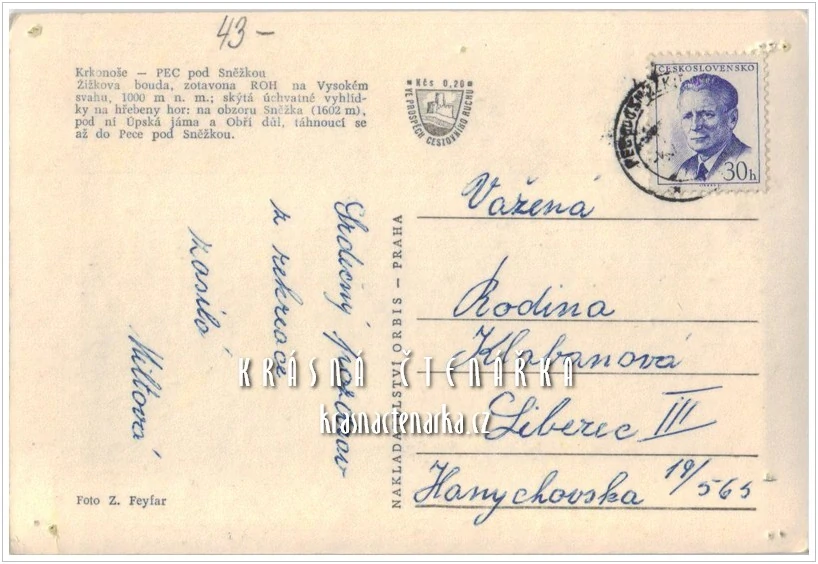 43-
Krkonoše — PEC pod Sněžkou
Žižkova bouda, zotavona ROH na Vysokém
svahu, 1000 m n. m.; skýtá úchvatné vyhlíd-
ky na hřebeny hor: na obzoru Sněžka (1602 m),
pod ní Úpská jáma a Obří důl, táhnoucí se
až do Pece pod Sněžkou.
Kčs 0,20
VE PROSPĚCH CESTOVNÍHO RUCHU
ČESKOSLOVENSKO
30h
Srdečný pozdrav
z rekreace
zasílá
NAKLADATELSTVÍ ORBIS — PRAHA
Vážená
Rodina
Klabanová
Liberec III
Hanychovska 19/565
KRÁSNÁ ČTENÁŘKA
krasnactenarka.cz
Foto Z. Feyfar